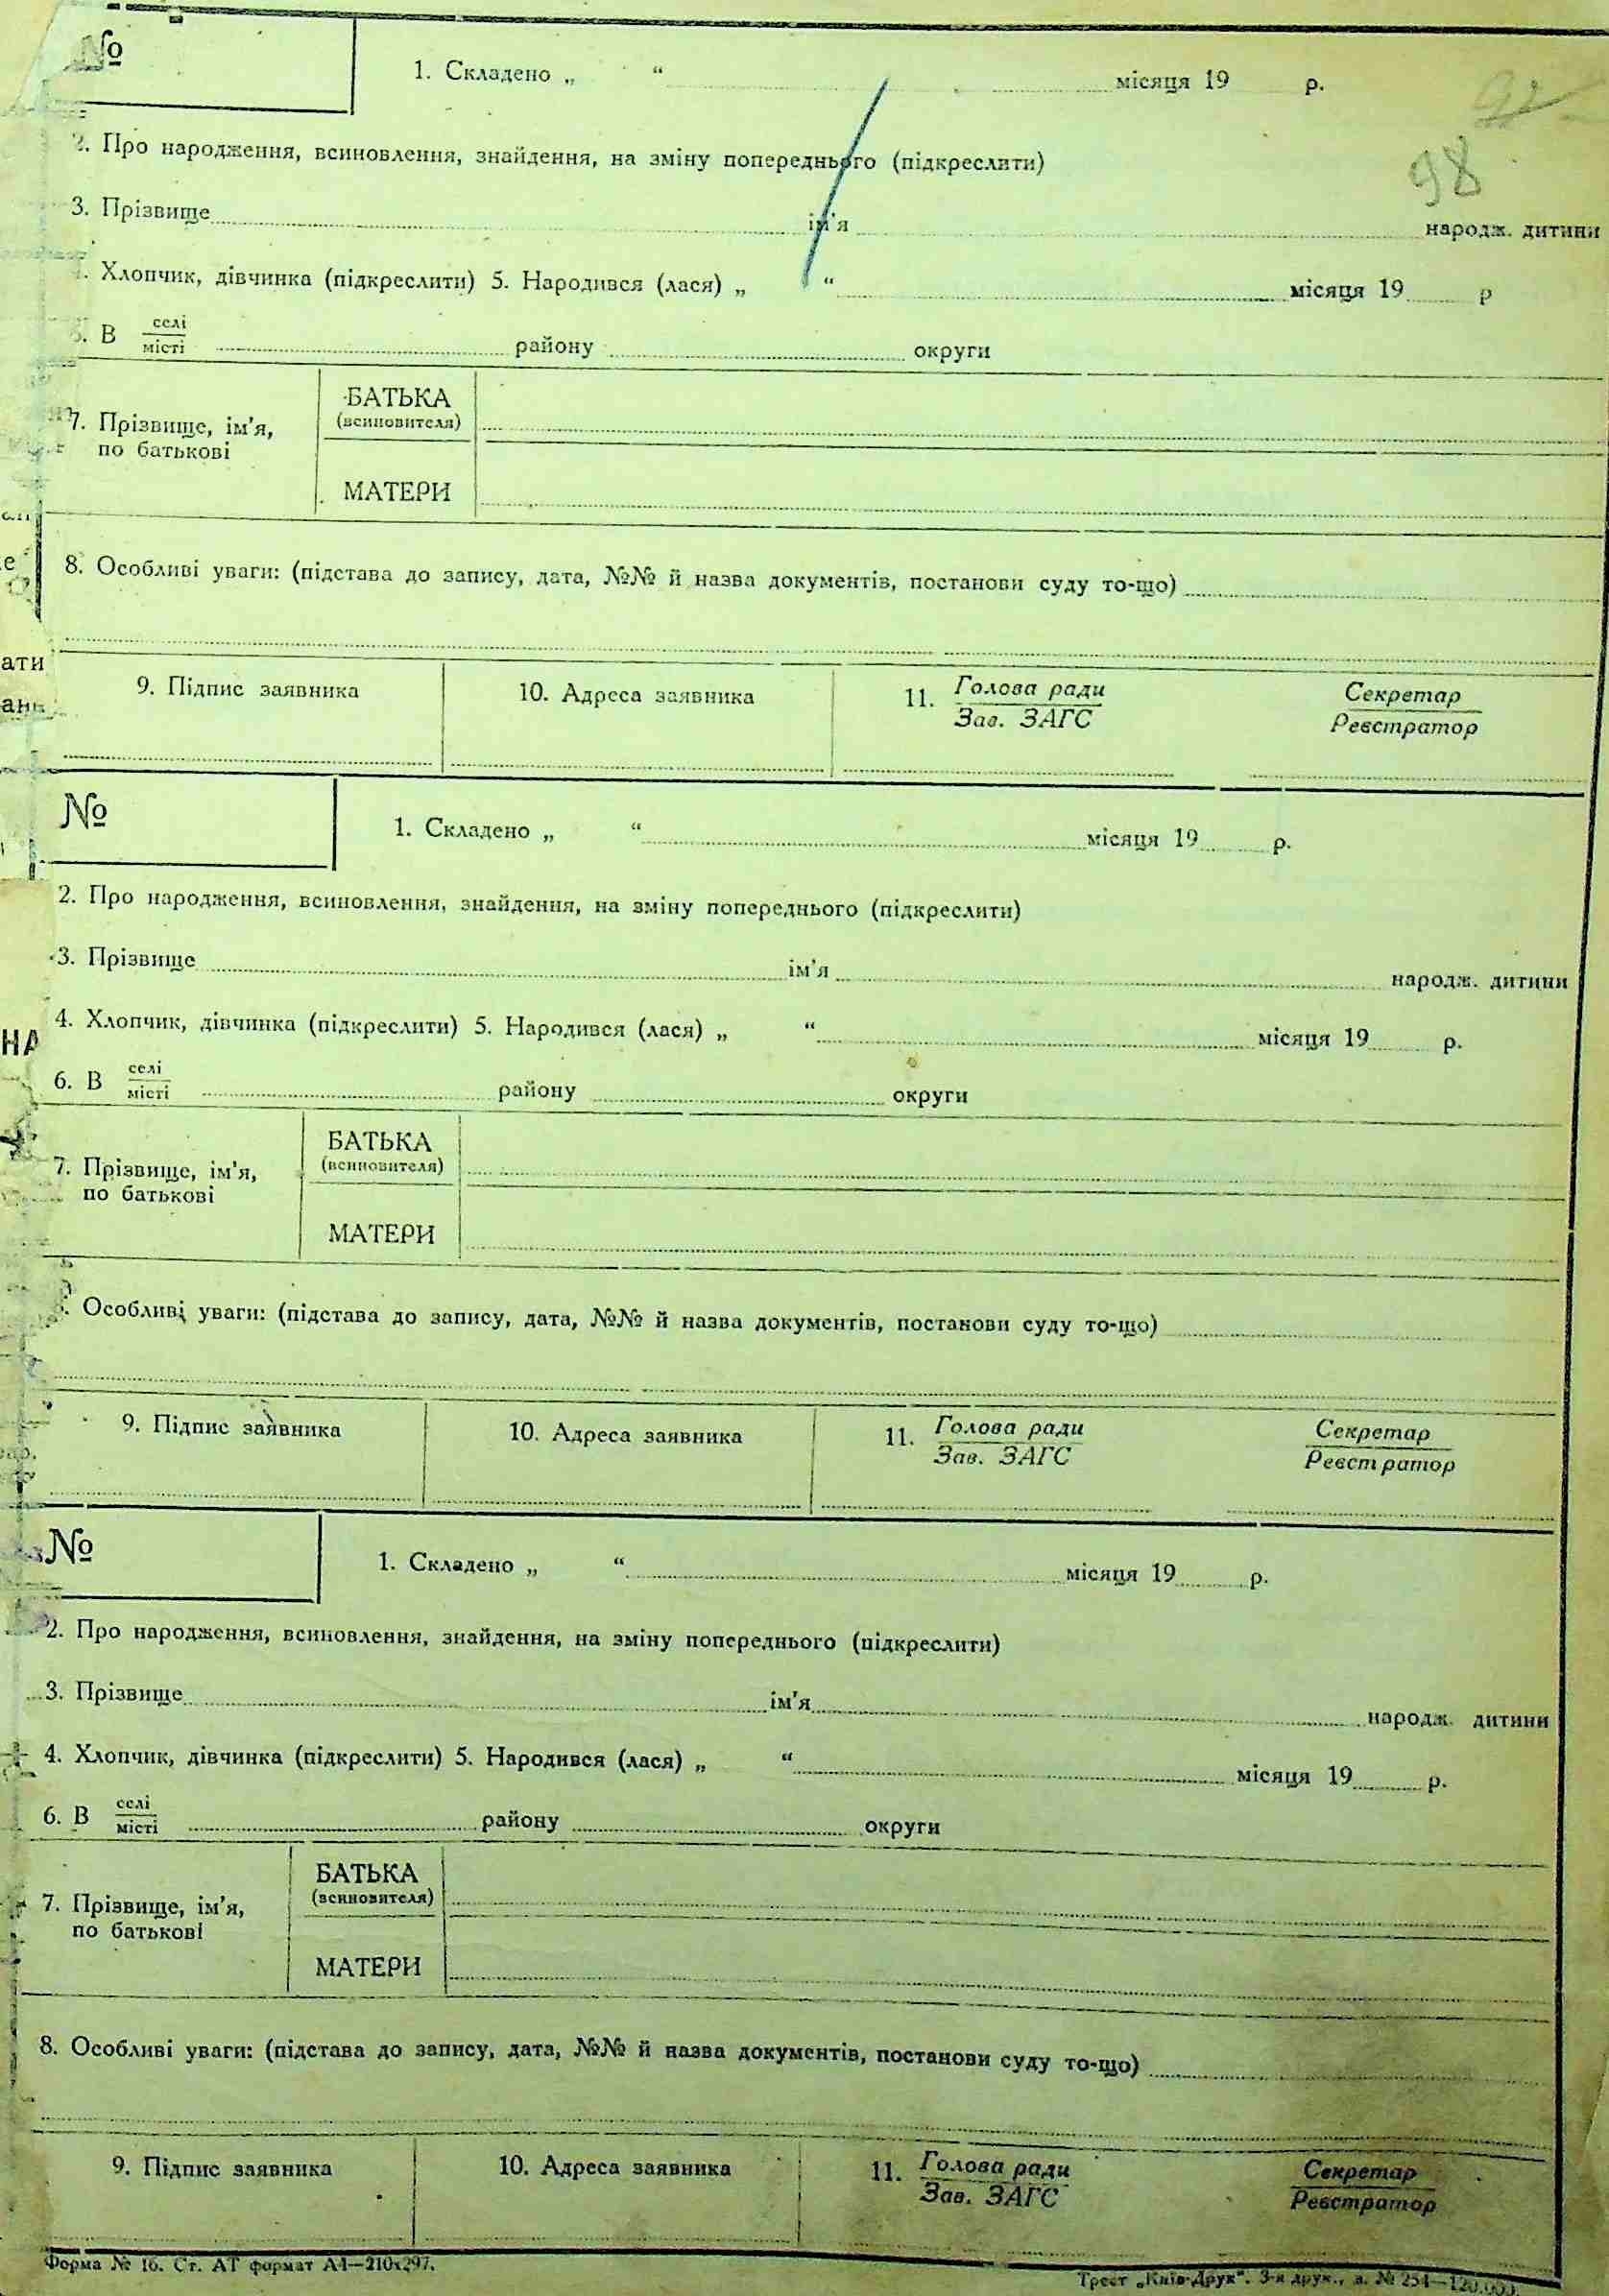 №
1. Складено „ “ місяця 19 р.
98
2. Про народження, всиновлення, знайдення, на зміну попереднього (підкреслити)
3. Прізвище ім'я народж. дитини
Хлопчик, дівчинка (підкреслити) 5. Народився (лася) „ “ місяця 19 р
6. В селі
місті району округи
7. Прізвище, ім'я,
по батькові
БАТЬКА
(всиновителя)
МАТЕРИ
8. Особливі уваги: (підстава до запису, дата, №№ й назва документів, постанови суду то-що)
ати
9. Підпис заявника 10. Адреса заявника 11. Голова ради Секретар
Зав. ЗАГС Реєстратор
№
1. Складено „ “ місяця 19 р.
2. Про народження, всиновлення, знайдення, на зміну попереднього (підкреслити)
3. Прізвище ім'я народж. дитини
4. Хлопчик, дівчинка (підкреслити) 5. Народився (лася) „ “ місяця 19 р.
НА
6. В селі
місті району округи
7. Прізвище, ім'я,
по батькові
БАТЬКА
(всиновителя)
МАТЕРИ
Особливі уваги: (підстава до запису, дата, №№ й назва документів, постанови суду то-що)
9. Підпис заявника 10. Адреса заявника 11. Голова ради Секретар
Зав. ЗАГС Реєстратор
№
1. Складено „ “ місяця 19 р.
2. Про народження, всиновлення, знайдення, на зміну попереднього (підкреслити)
3. Прізвище ім'я народж. дитини
4. Хлопчик, дівчинка (підкреслити) 5. Народився (лася) „ “ місяця 19 р.
6. В селі
місті району округи
7. Прізвище, ім'я,
по батькові
БАТЬКА
(всиновителя)
МАТЕРИ
8. Особливі уваги: (підстава до запису, дата, №№ й назва документів, постанови суду то-що)
9. Підпис заявника 10. Адреса заявника 11. Голова ради Секретар
Зав. ЗАГС Реєстратор
Форма № 16. Ст. АТ формат А4—210х297.
Трест „Київ-Друк“. 3-я друк., з. № 254—120.000.